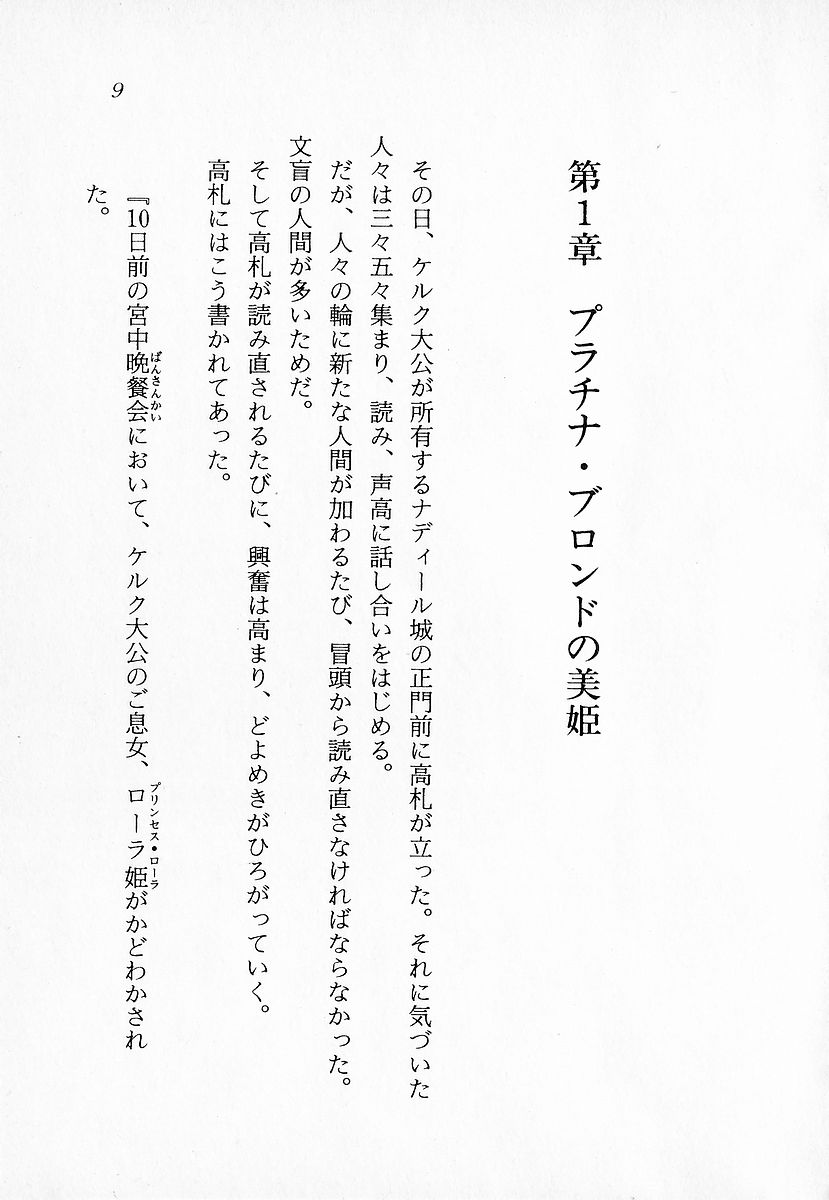 第1章　プラチナ・ブロンドの美姫
その日、ケルク大公が所有するナディール城の正門前に高札が立った。それに気づいた
人々は三々五々集まり、読み、声高に話し合いをはじめる。
だが、人々の輪に新たな人間が加わるたび、冒頭から読み直さなければならなかった。
文盲の人間が多いためだ。
そして高札が読み直されるたびに、興奮は高まり、どよめきがひろがっていく。
高札にはこう書かれてあった。
『10日前の宮中晩餐会において、ケルク大公のご息女、ローラ姫がかどわかされ
ばんさんかい
プリンセス・ローラ
た。
9